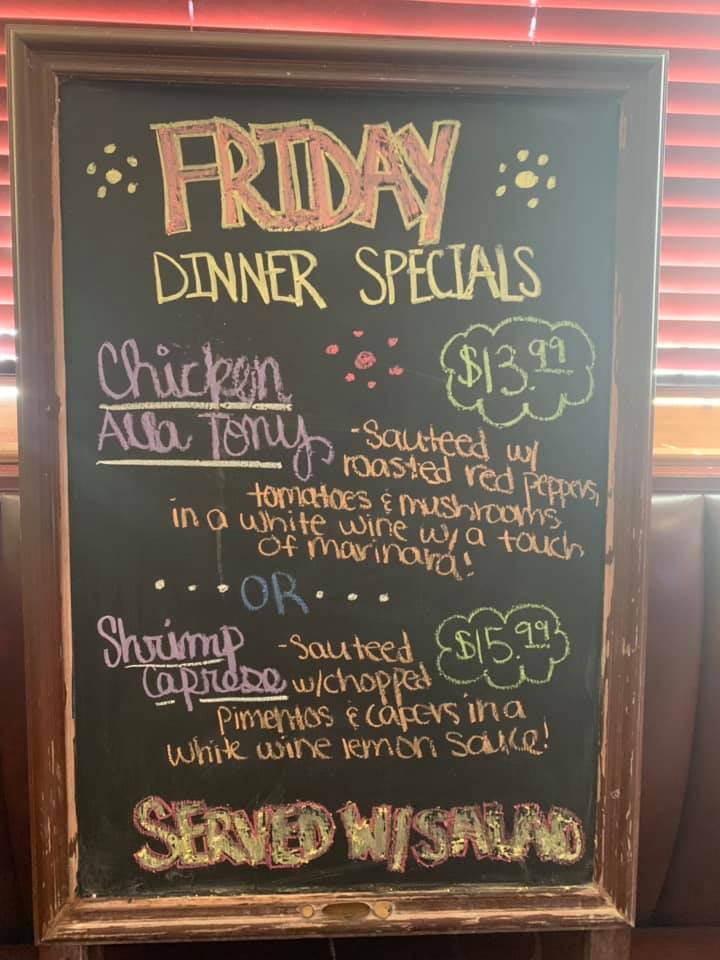 FRIDAY
DINNER SPECIALS
Chicken
Alla Tony
$13.99
-Sauteed w/
roasted red peppers,
tomatoes & mushrooms
in a white wine w/a touch
of marinara!
....OR....
Shrimp
Caprese
-Sauteed
$15.99
w/chopped
Pimentos & capers in a
white wine lemon sauce!
SERVED W/SALAD